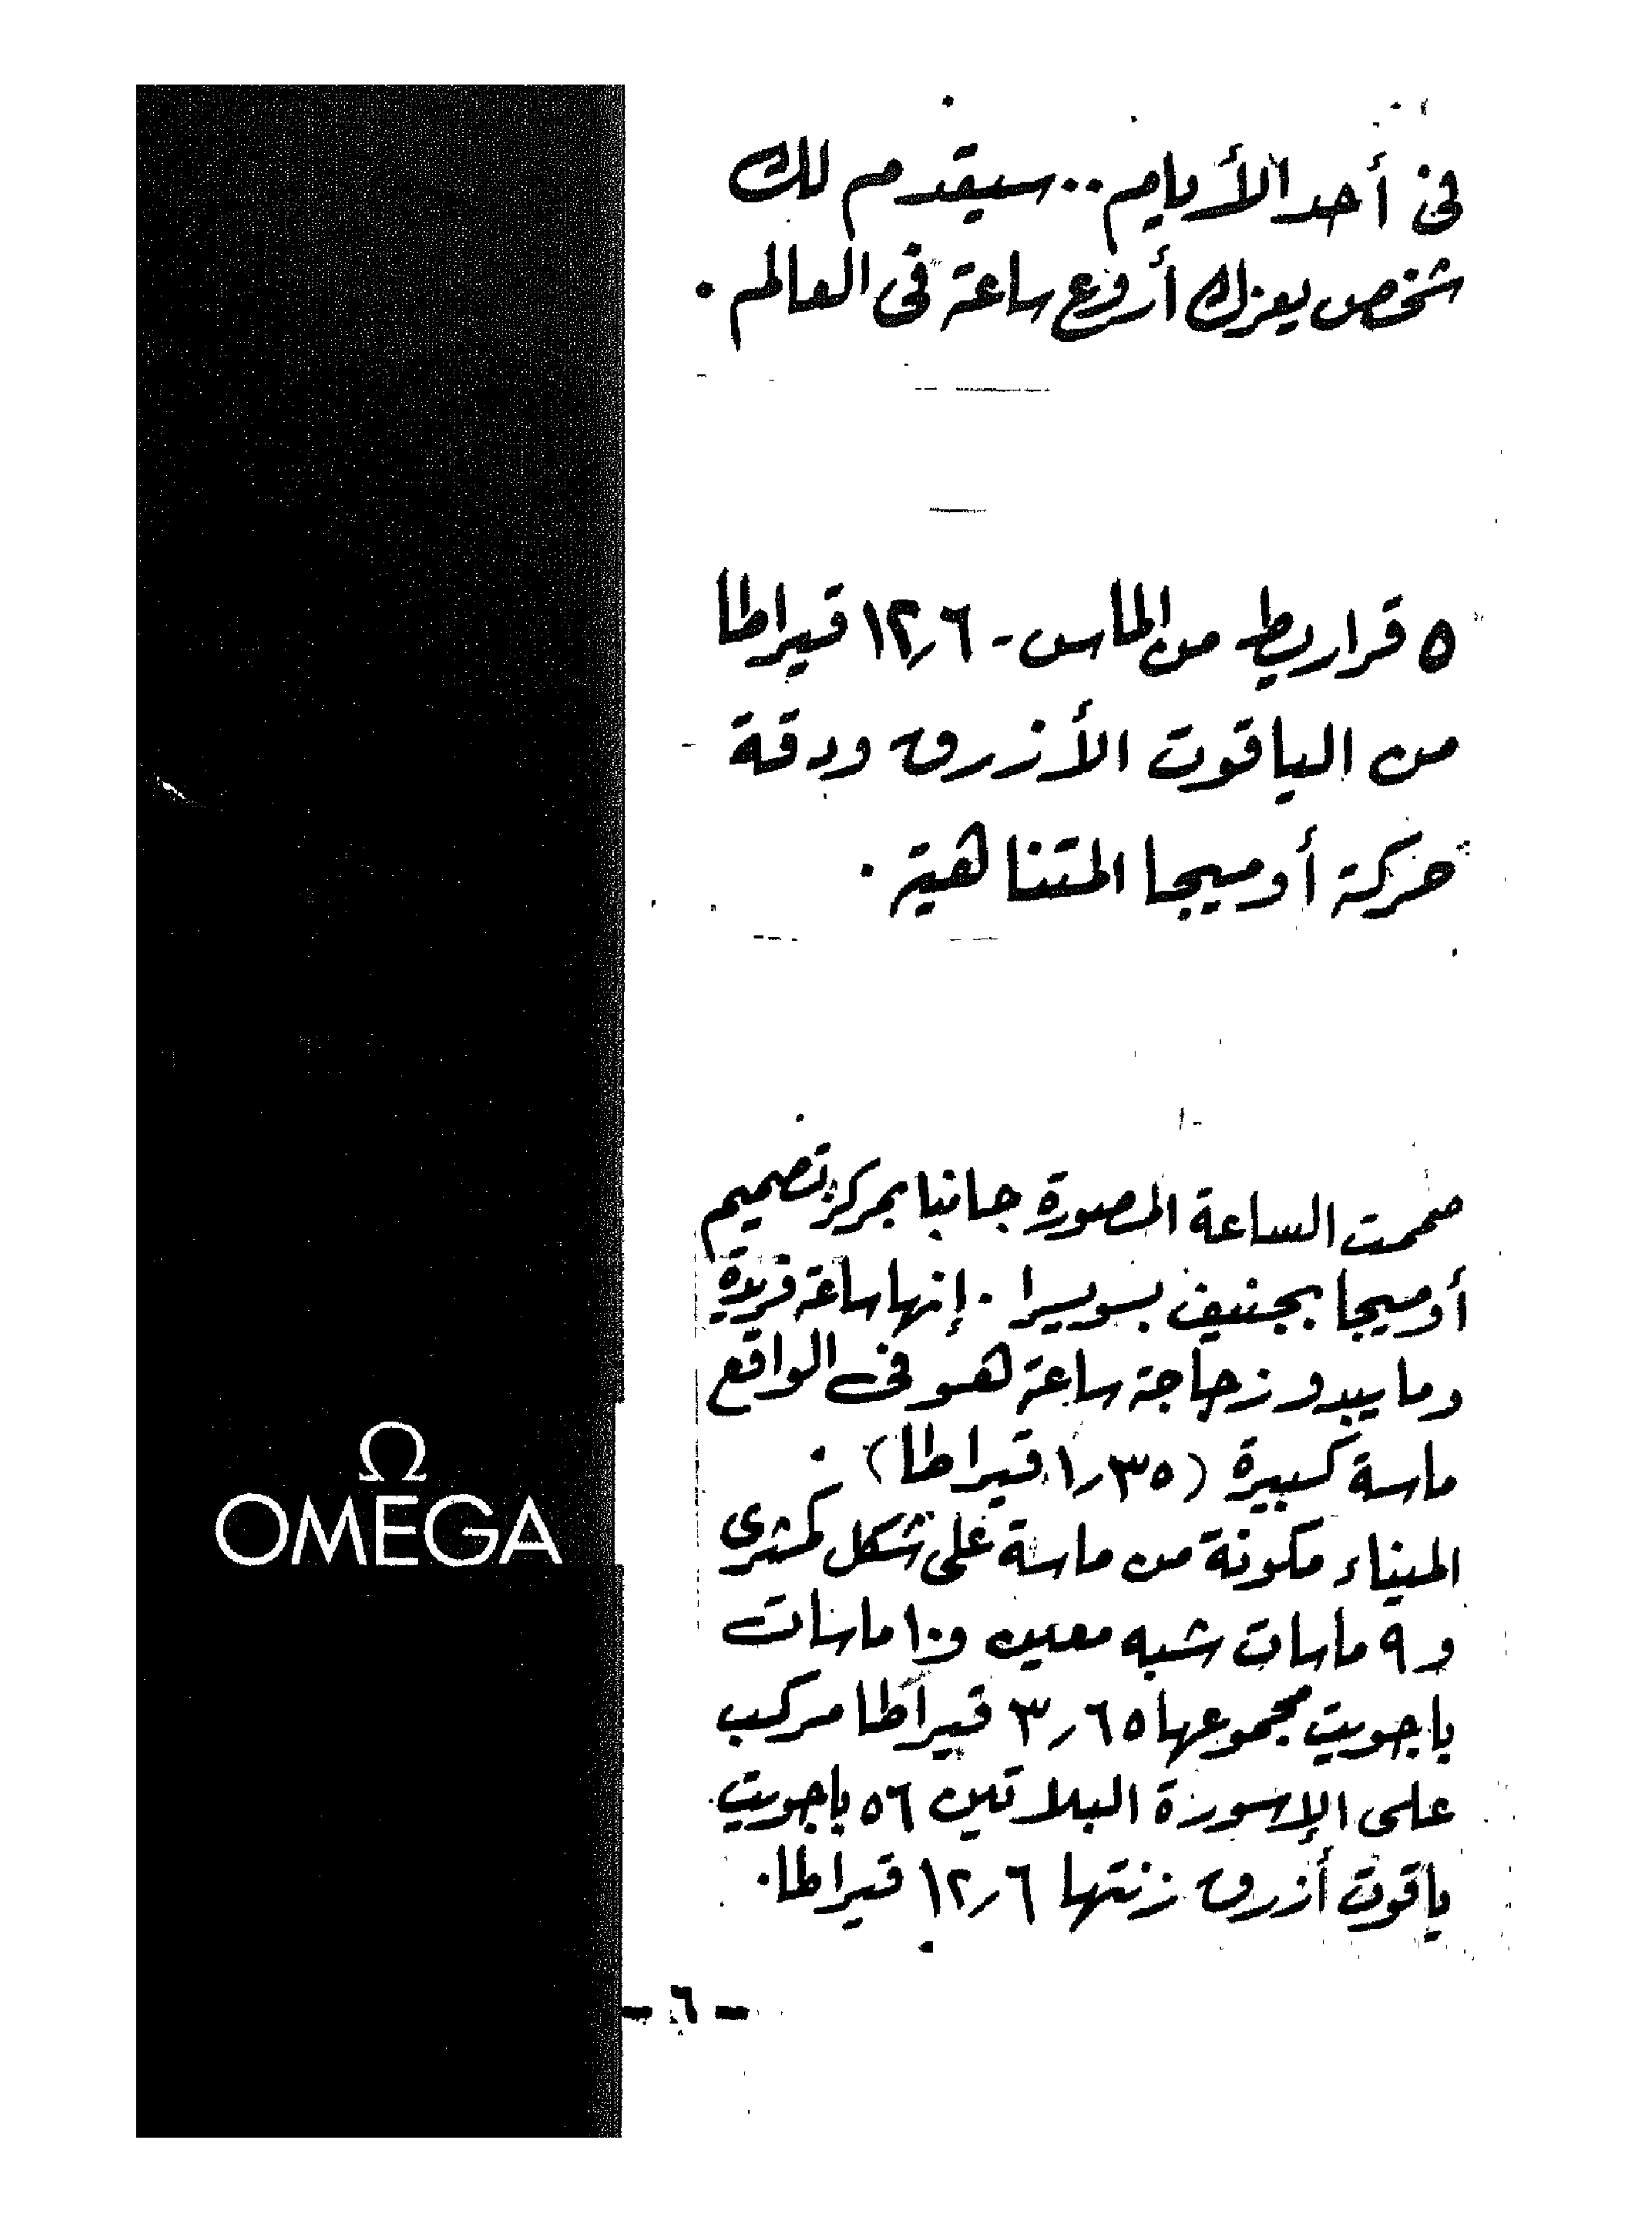 فى أحد الأيام.. سيقدم لك
شخص يعزك أروع ساعة فى العالم.
٥ قراريط من الماس - ١٢٫٦ قيراطا
من الياقوت الأزرق ودقة
حركة أوميجا المتناهية.
صممت الساعة المصورة جانبا بمركز تصميم
أوميجا بجنيف بسويسرا. إنها ساعة فريدة
وما يبدو زجاجة ساعة هو فى الواقع
ماسة كبيرة (١٫٣٥ قيراطا).
الميناء مكونة من ماسة على شكل كمثرى
و٩ ماسات شبه معين و١٠ ماسات
باجويت مجموعها ٣٫٦٥ قيراطا مركب
على الإسورة البلاتين ٥٦ باجويت
ياقوت أزرق زنتها ١٢٫٦ قيراطا.
Ω
OMEGA
- ٦ -